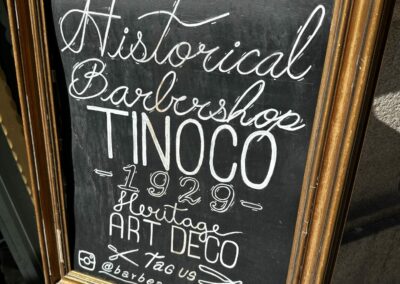 Historical
Barbershop
TINOCO
- 1929 -
Heritage
ART DECO
TAG US